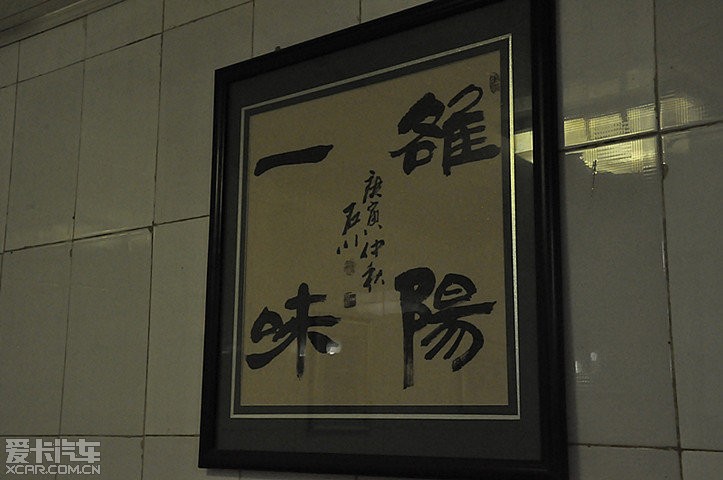 雒陽
一味
庚寅仲秋
石川
爱卡汽车
XCAR.COM.CN